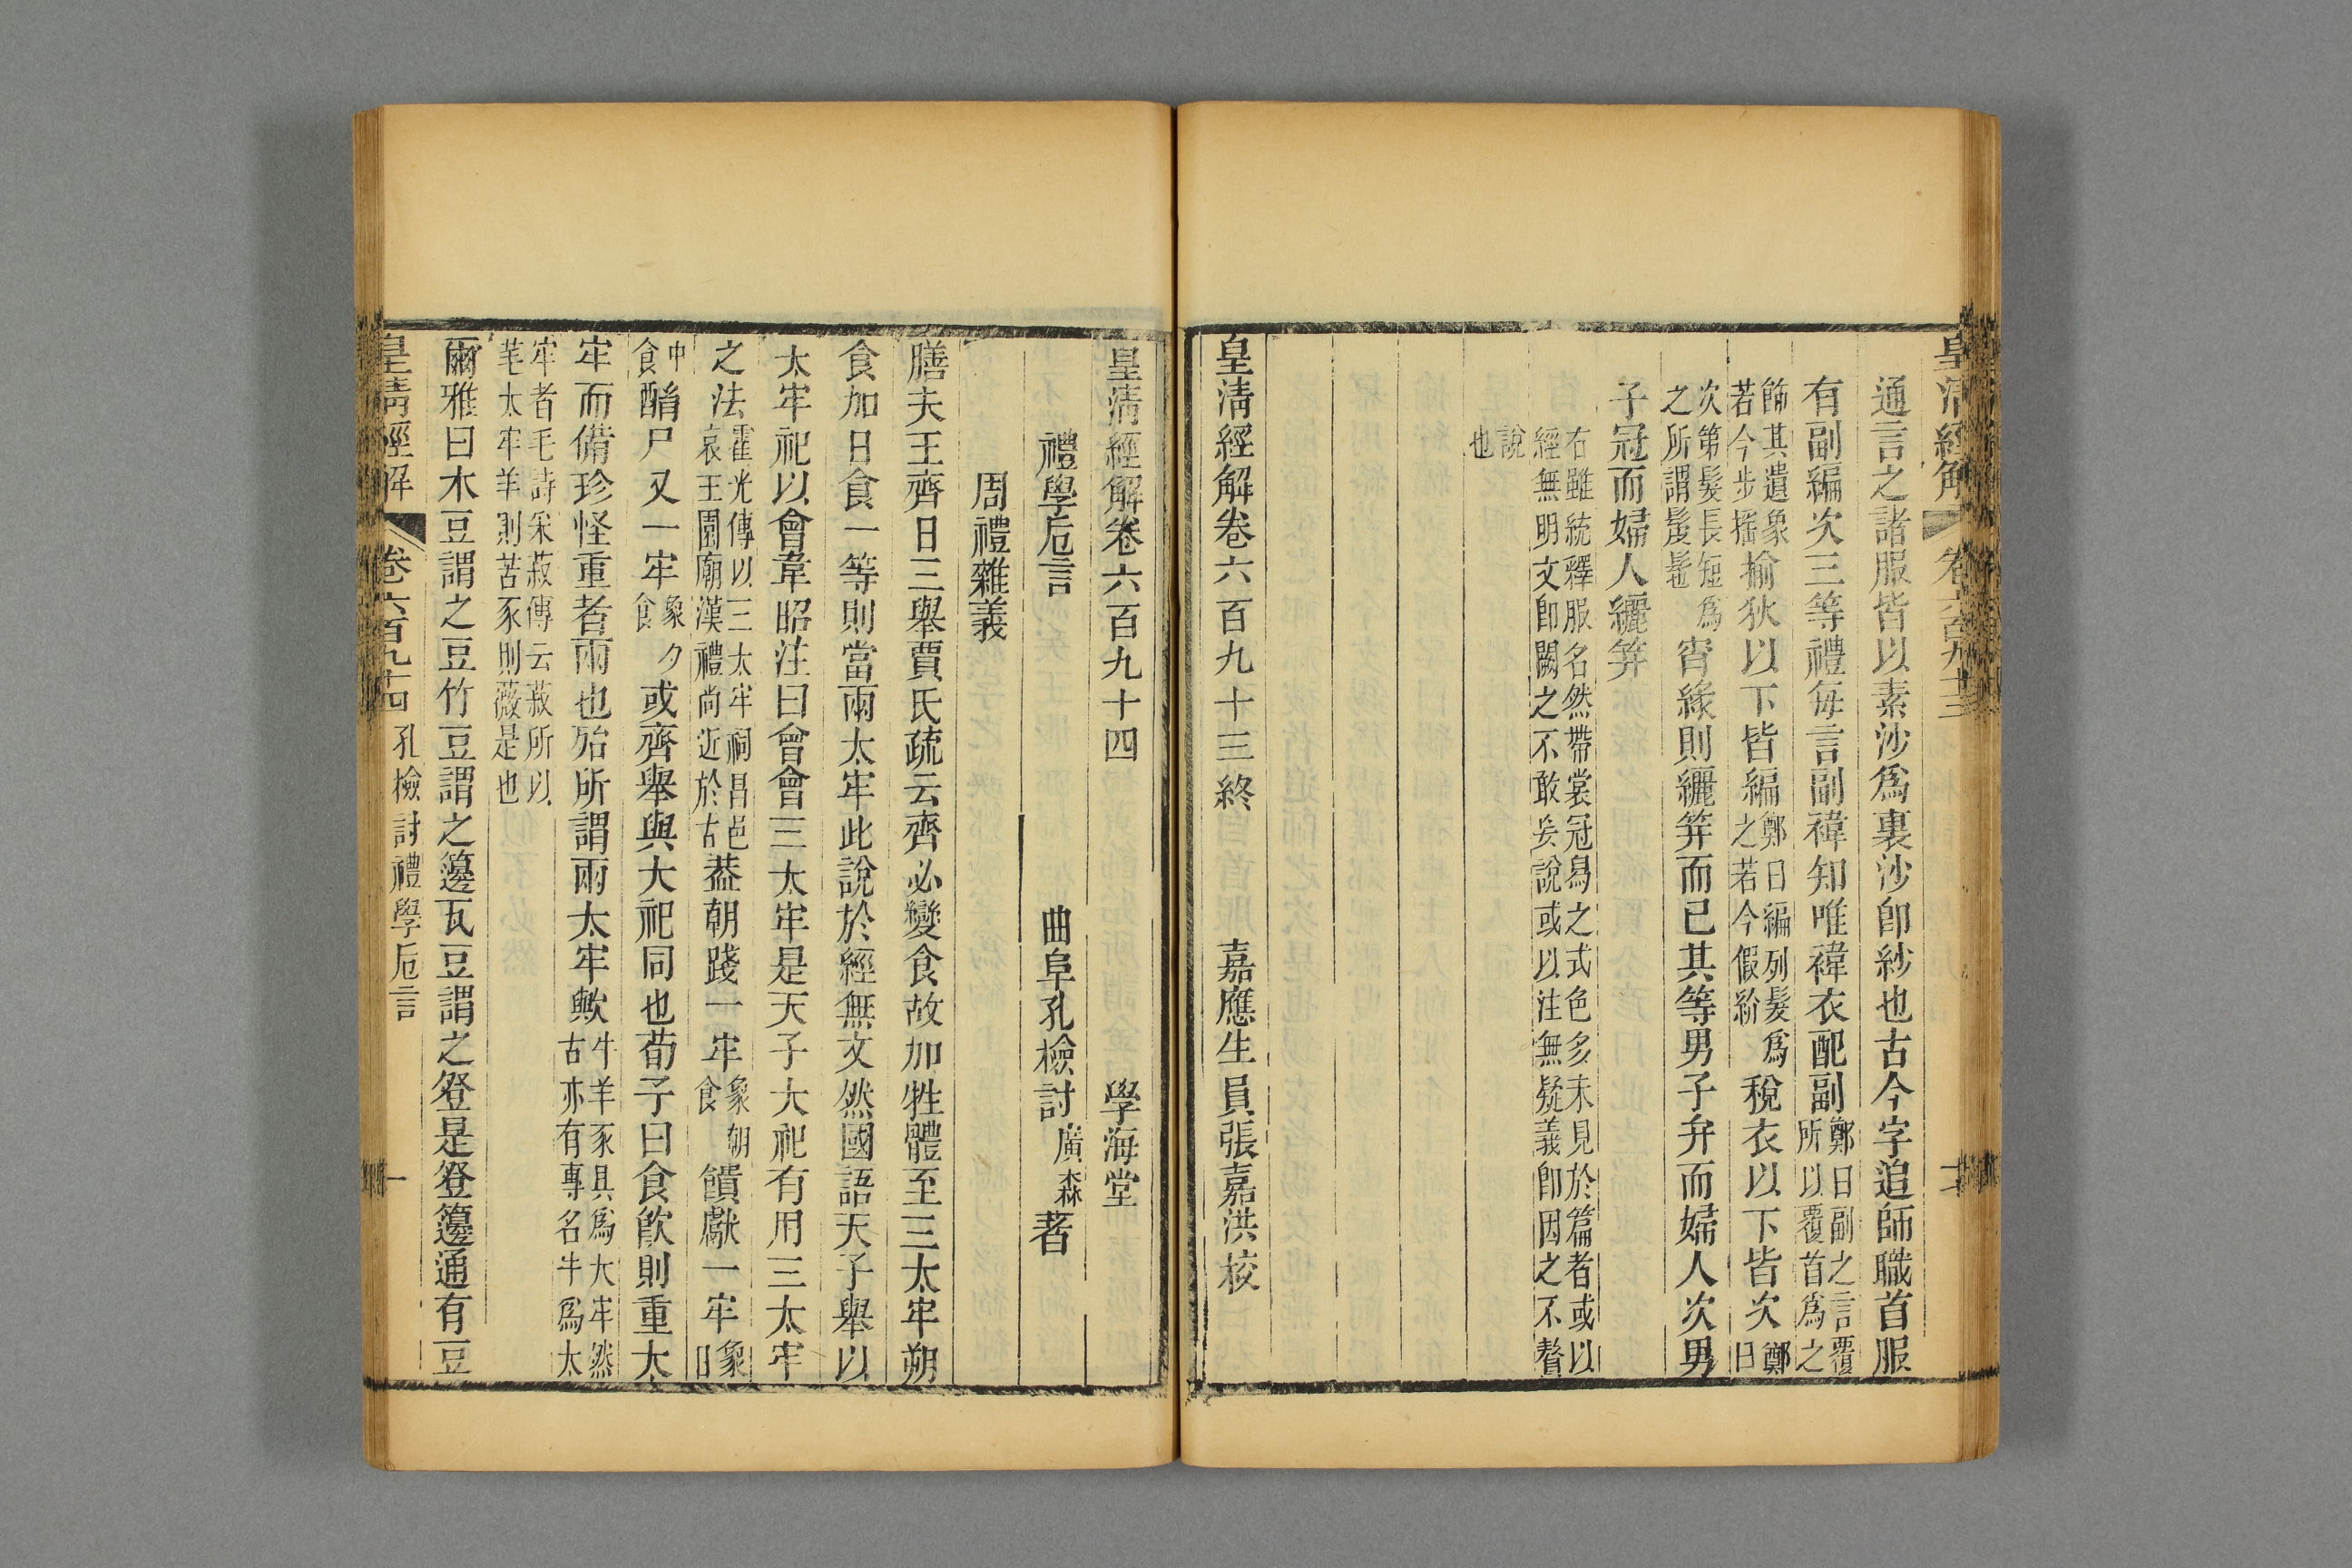 皇清經解 卷六百九十三
通言之諸服皆以素沙爲裏沙卽紗也古今字追師職首服
有副編次三等禮每言副褘知唯褘衣配副鄭曰副之言覆所以覆首爲之
飾其遺象若今步搖揄狄以下皆編鄭曰編列髮爲之若今假紒稅衣以下皆次鄭曰
次第髮長短爲之所謂髲髢宵緣則纚笄而已其等男子弁而婦人次男
子冠而婦人纚笄
右雖統釋服名然帶裳冠舄之式色多未見於篇者或以
經無明文卽闕之不敢妄說或以注無疑義卽因之不贅
說
也
皇清經解卷六百九十三終 嘉應生員張嘉洪校
皇清經解卷六百九十四 學海堂
禮學卮言 曲阜孔檢討廣森著
周禮雜義
膳夫王齊日三舉賈氏疏云齊必變食故加牲體至三太牢朔
食加日食一等則當兩太牢此說於經無文然國語天子舉以
太牢祀以會韋昭注曰會會三太牢是天子大祀有用三太牢
之法霍光傳以三太牢祠昌邑哀王園廟漢禮尚近於古葢朝踐一牢象朝食饋獻一牢象日
中食酳尸又一牢象夕食或齊舉與大祀同也荀子曰食飮則重大
牢而備珍怪重者兩也殆所謂兩太牢歟牛羊豕具爲大牢然古亦有專名牛爲太
牢者毛詩采菽傳云菽所以芼太牢羊則苦豕則薇是也
爾雅曰木豆謂之豆竹豆謂之籩瓦豆謂之豋是豋籩通有豆
皇清經解 卷六百九十四 孔檢討禮學卮言 一